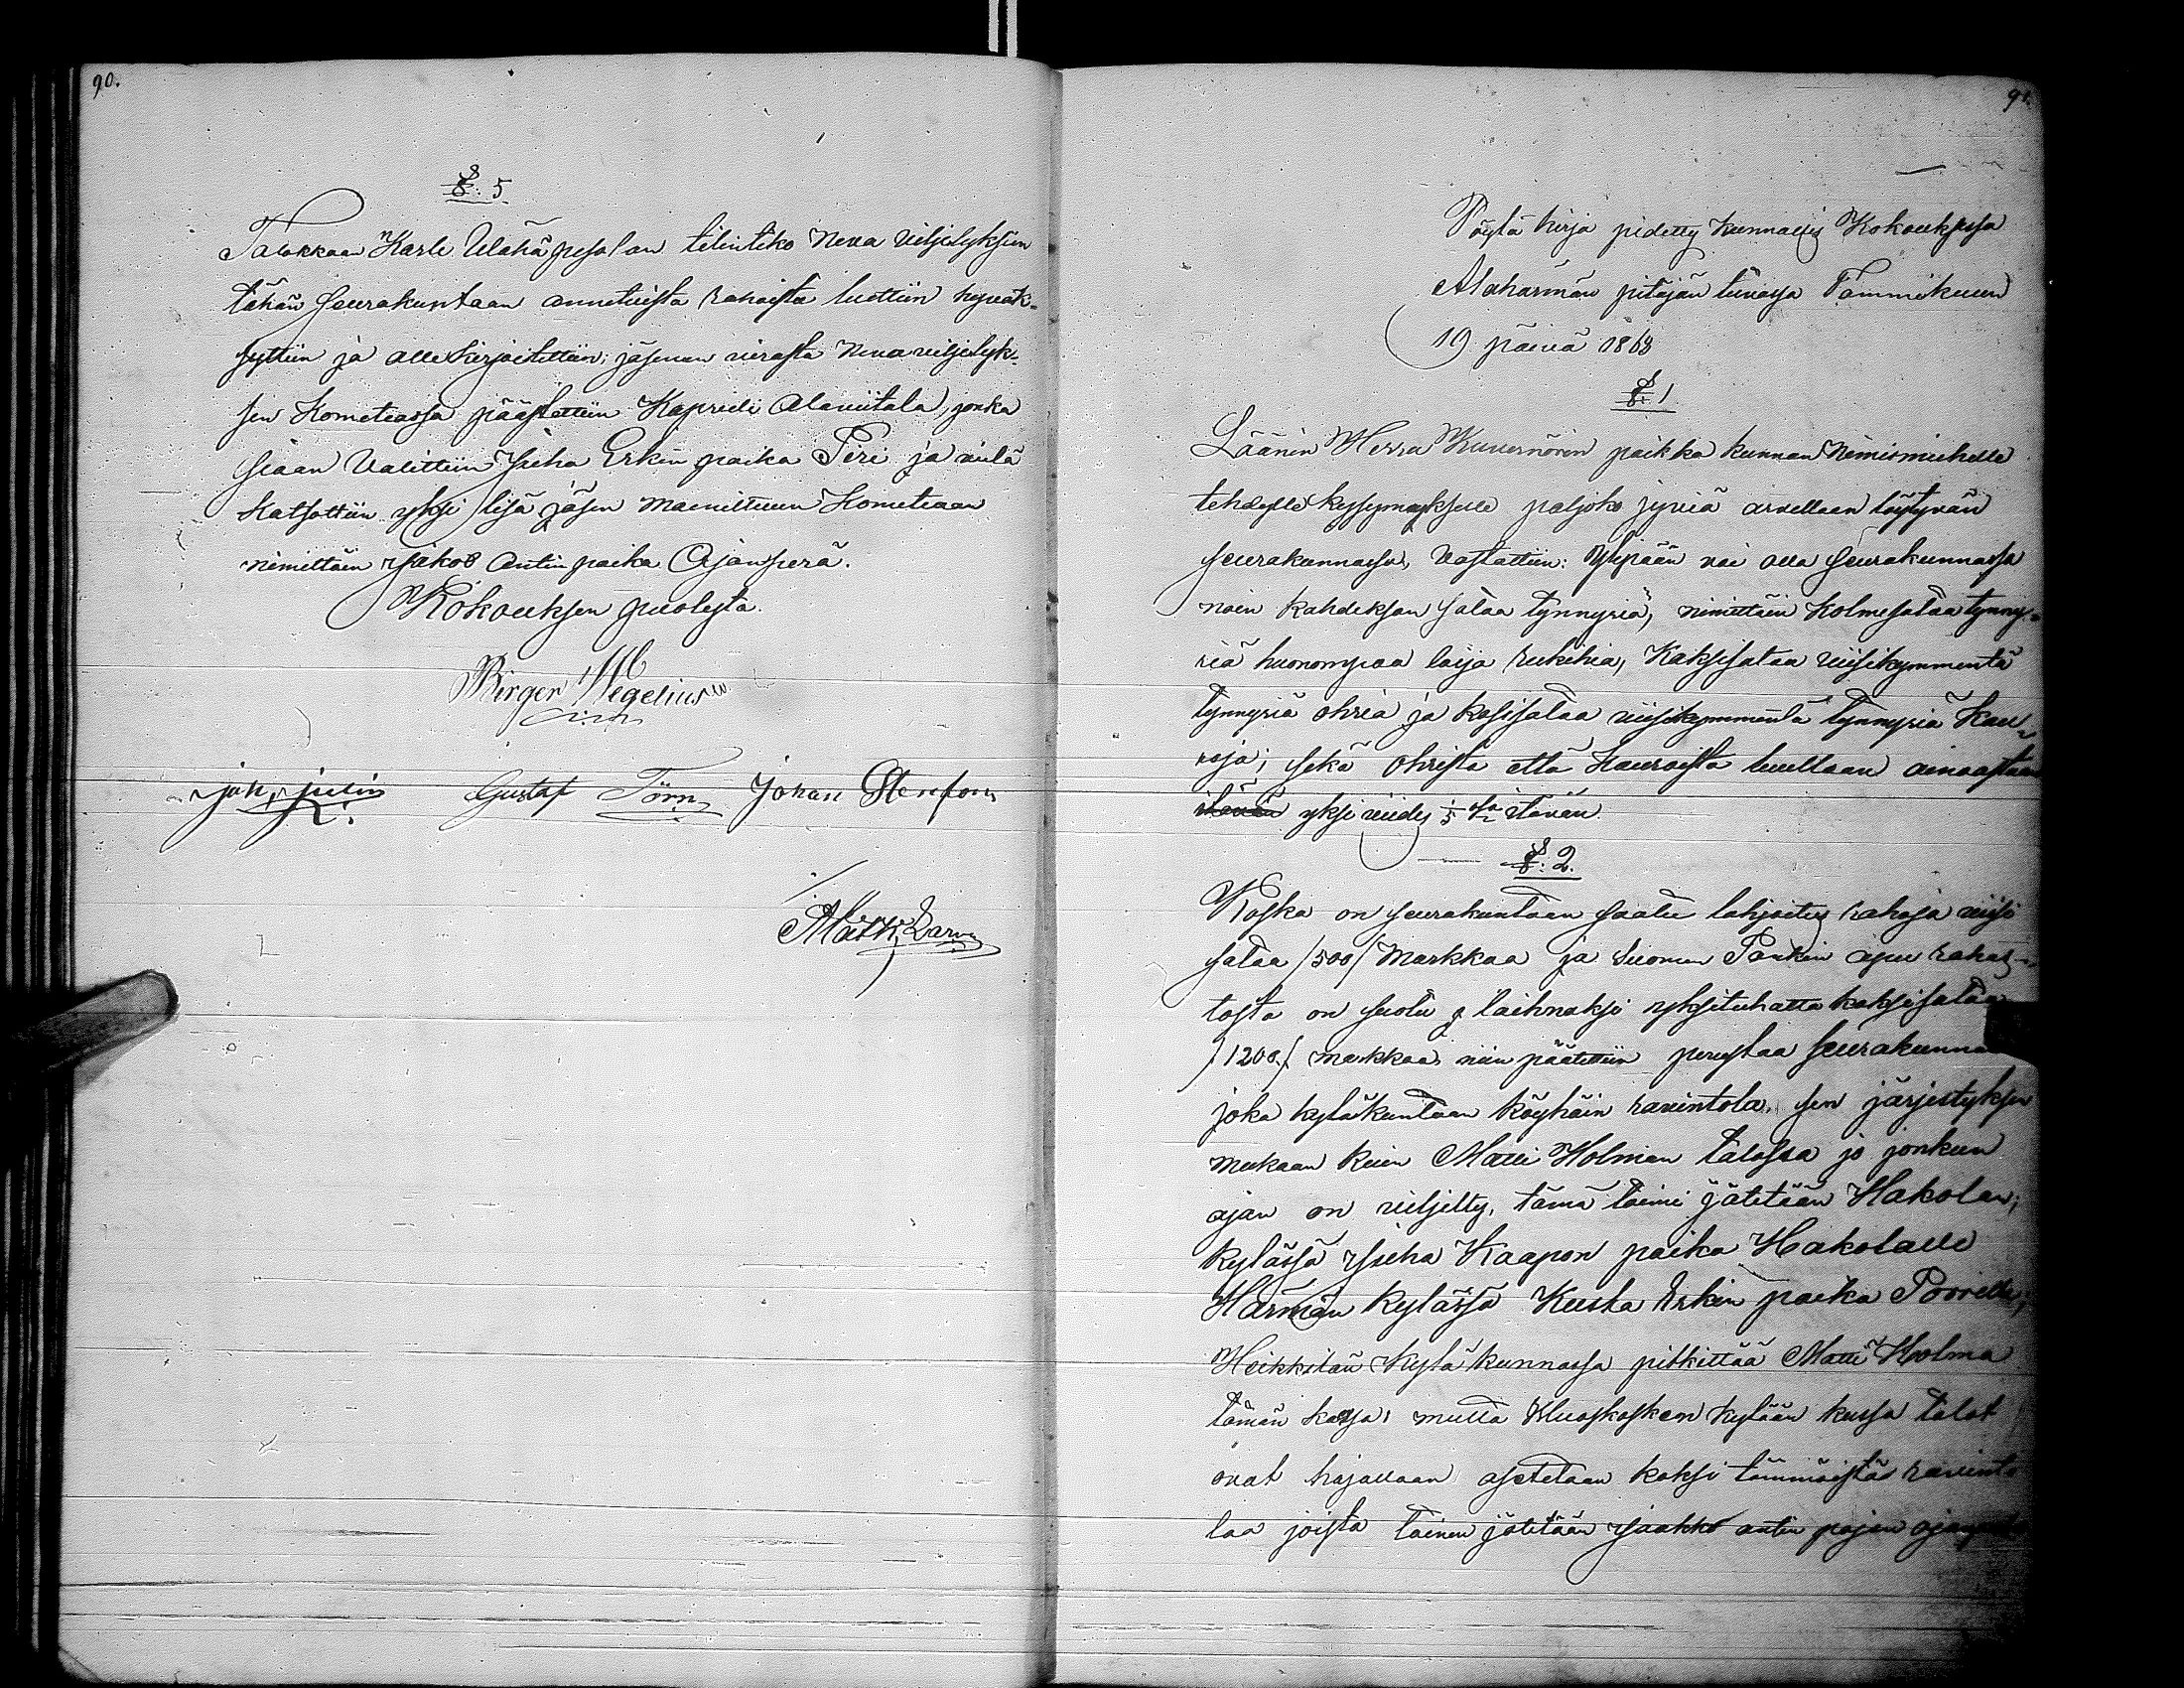 90.
§. 5.
Talokkaan Karle Wähäpesolan tilintiko neva viljelyksien
tähän seurakuntaan annetuista rahoista luettiin hyväk-
syttiin ja allekirjoitettiin; jäsenen virasta neva viljelyk-
sen Komiteassa päästettiin Kaprieli Alaviitala, jonka
siaan valittiin Juha Erkin poika Piri ja vielä
katsottiin yksi lisä jäsen mainittuun Komiteaan
nimittäin Jakob Antin poika Ojanperä.
Kokouksen puolesta.
Birger Hegelius
joh, julin Gustaf Törn Johan Stenfors
Matts
91.
Pöytä kirja pidetty kunnallis Kokouksessa
Alahärmän pitäjän tuvassa Tammikuun
19 päivä 1868
§. 1
Läänin Herra Kuvernörin paikka kunnan Nimismiehelle
tehdylle kysymykselle paljoko jyviä arvellaan löytyvän
seurakunnassa, vastattiin: Ylipään voi olla seurakunnassa
noin kahdeksan sataa tynnyriä, nimittäin kolmesataa tynny-
riä huonompaa laija rukihia, Kaksisataa viisikymmentä
tynnyriä ohria ja kasisataa viisikymmentä tynnyriä Kau-
roja; sekä ohrista että kauroista luullaan ainoastaan
itävän yksi viides 1/5 itävän
§. 2.
Koska on seurakuntaan saatu lahjoitus rahoja viisi
sataa /500/ Markkaa ja Suomen Pankin apu rahas-
tosta on suotu laihnaksi yksituhatta kaksisataa
/1200./ markkaa, niin päätettiin perustaa seurakunnan
joka kyläkuntaan köyhäin ravintola, sen järjestyksen
mukaan kuin Matti Holman talossa jo jonkun
ajan on viljelty, tämä toimi jätetään Hakolan;
kylässä Juha Kaapon poika Hakolalle
Härmän kylässä Kusta Erkin poika Porrille;
Heikkilän kyläkunnassa pitkittää Matti Holma
tämän kassa, mutta Kluoskosken kylään kussa talot
ovat hajallaan asetetaan kaksi tämmöistä ravinto
laa joista toinen jätetään Jaakko antin pojan